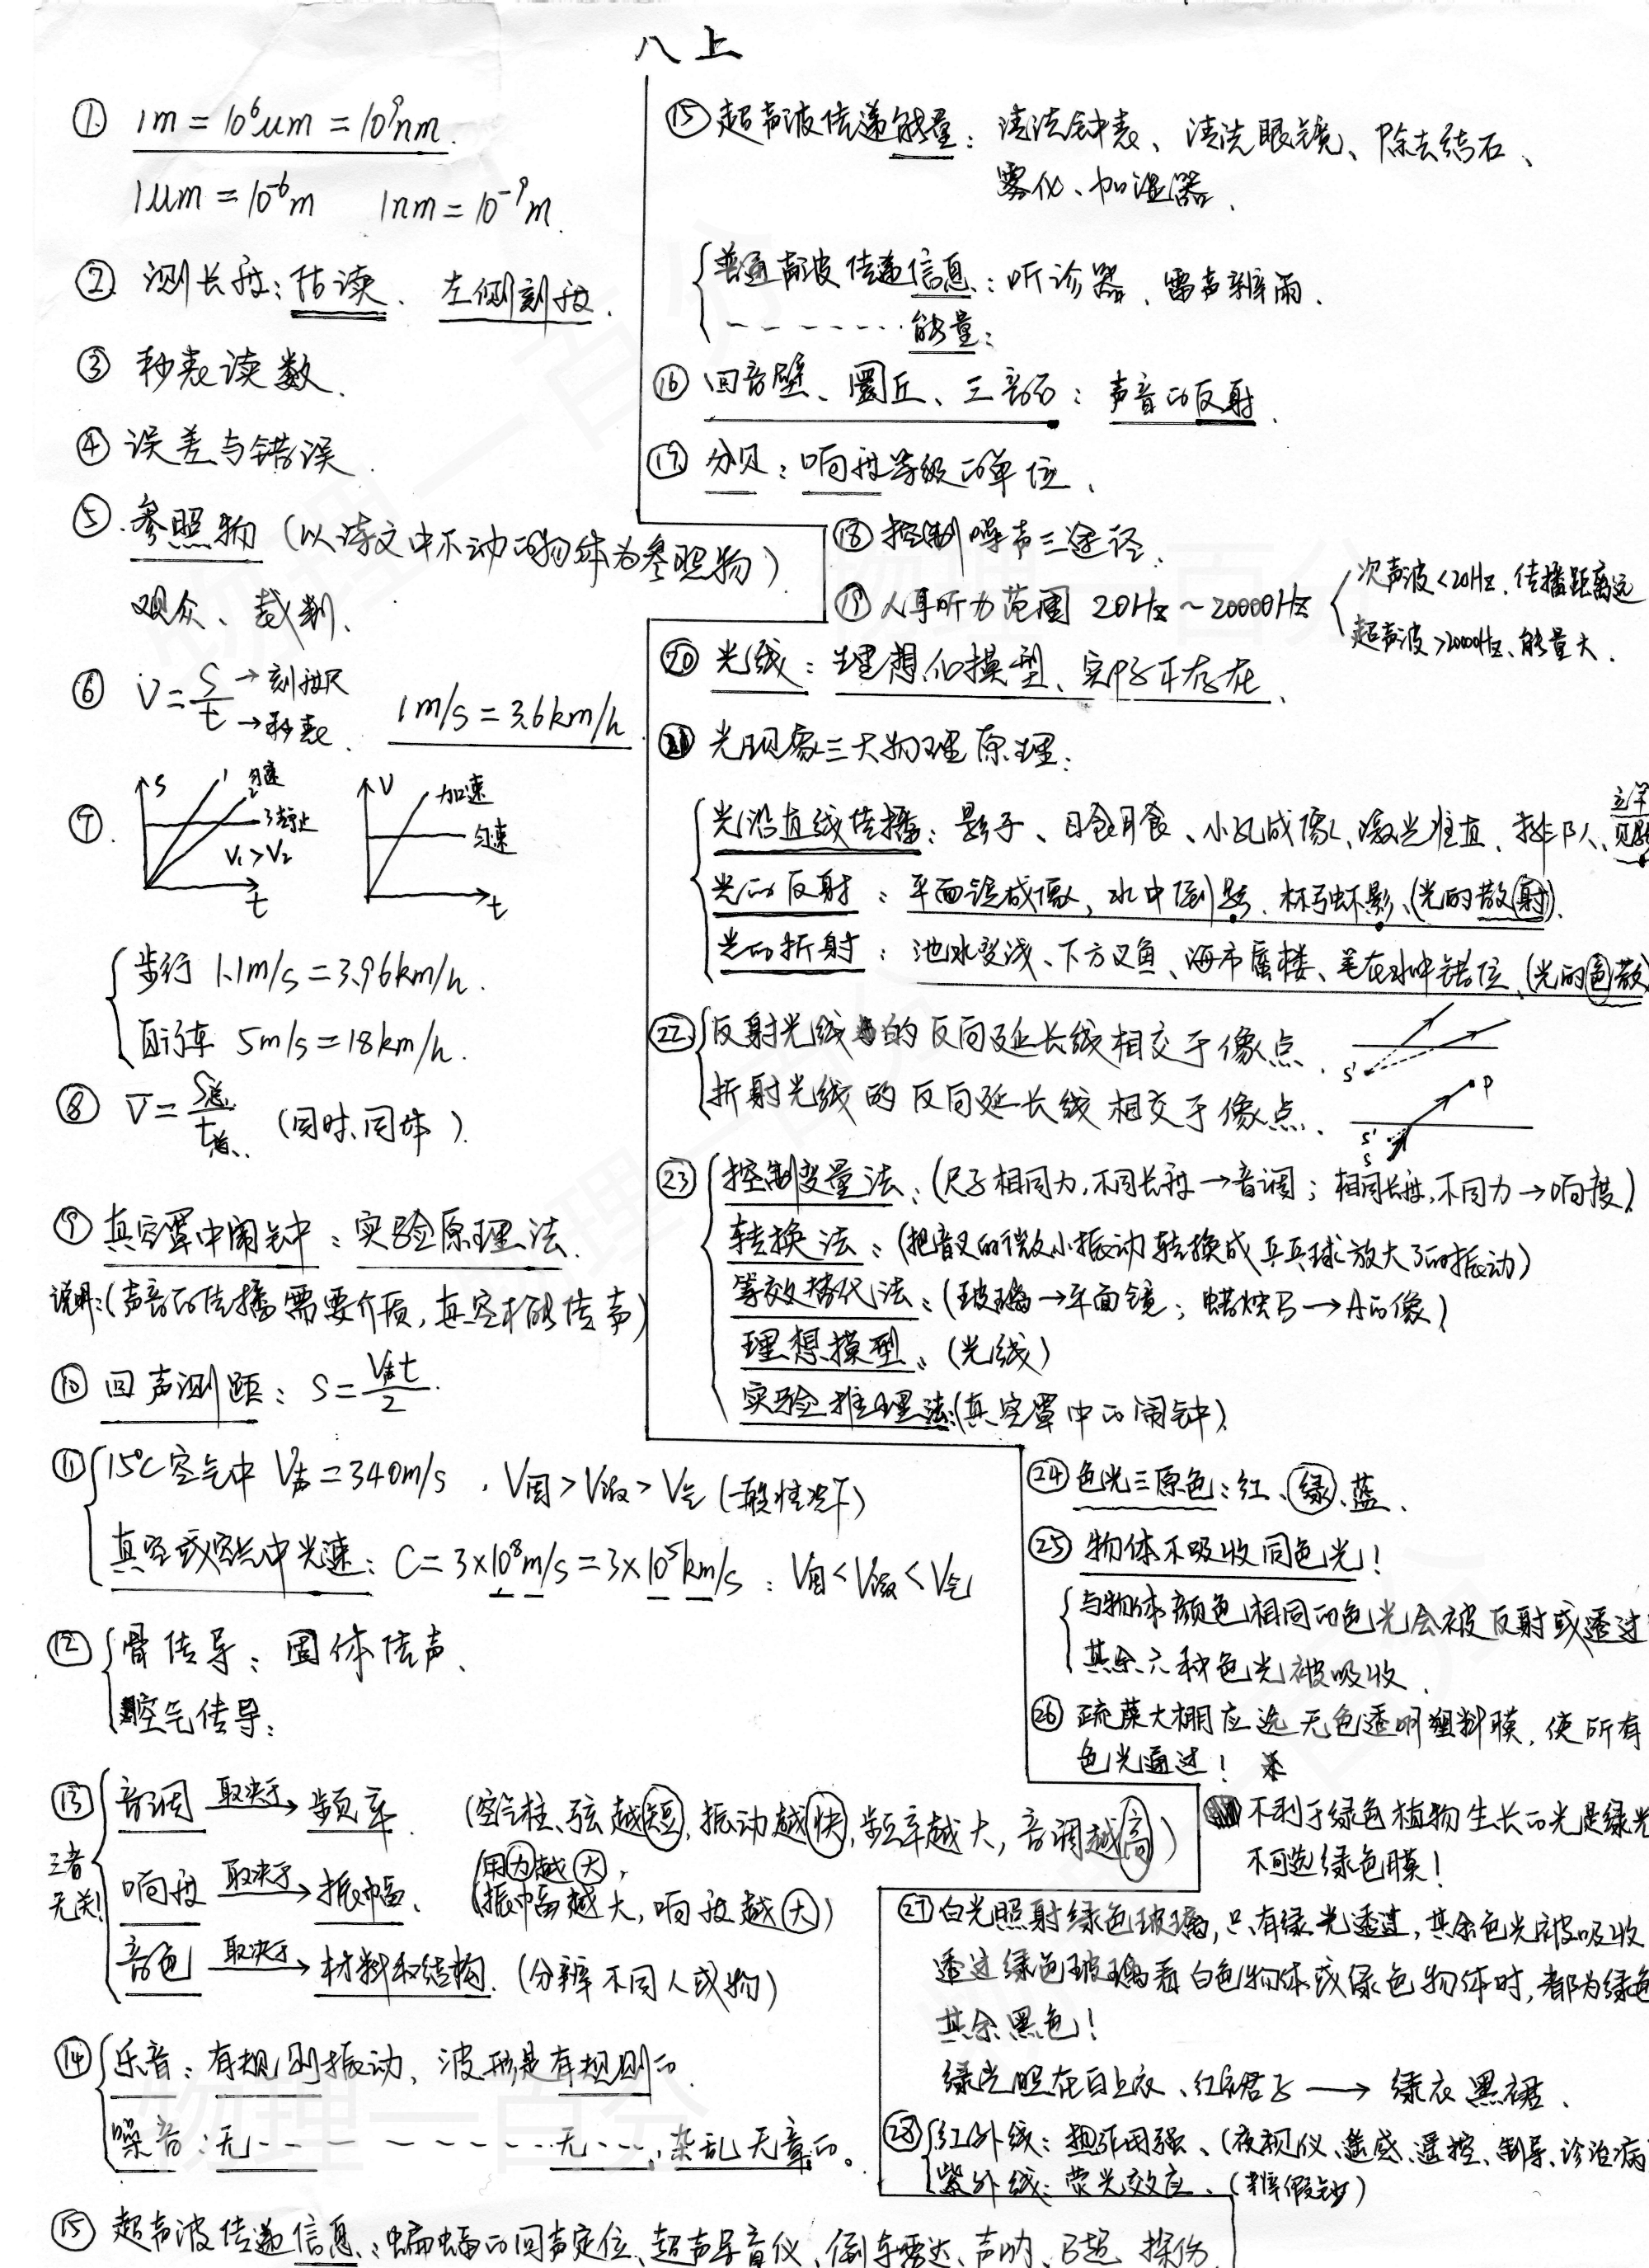 八上
① 1m = 10⁶μm = 10⁹nm.
1μm = 10⁻⁶m 1nm = 10⁻⁹m.
② 测长度：估读、左侧刻度.
③ 秒表读数.
④ 误差与错误.
⑤ 参照物（以诗文中不动的物体为参照物）
观众、裁判、
⑥ V = S/t →刻度尺 →秒表. 1m/s = 3.6km/h
⑦ S 1 匀速 2 3静止 V₁>V₂ t V 加速 匀速 t
步行 1.1m/s = 3.96km/h.
自行车 5m/s = 18km/h.
⑧ V̅ = S总/t总. （同时、同体）.
⑨ 真空罩中闹钟：实验原理法.
说明：（声音的传播需要介质，真空不能传声）
⑩ 回声测距：S = V声t/2.
⑪ 15℃空气中 V声 = 340m/s ，V固 > V液 > V气（一般情况下）
真空或空气中光速：C = 3×10⁸m/s = 3×10⁵km/s ：V固 < V液 < V气
⑫ 骨传导：固体传声、
空气传导：
⑬ 音调 取决于→ 频率. （空气柱、弦越短，振动越快，频率越大，音调越高）
三者无关! 响度 取决于→ 振幅、 （用力越大，振幅越大，响度越大）
音色 取决于→ 材料和结构. （分辨不同人或物）
⑭ 乐音：有规则振动、波形是有规则的.
噪音：无------无---，杂乱无章的。
⑮ 超声波传递信息：蝙蝠的回声定位、超声导盲仪、倒车雷达、声呐、B超 探伤
⑮ 超声波传递能量：清洗钟表、清洗眼镜、除去结石、
雾化、加湿器、
普通声波传递信息：听诊器、雷声辨雨.
------能量：
⑯ 回音壁、圜丘、三音石：声音的反射.
⑰ 分贝：响度等级的单位、
⑱ 控制噪声三途径.
⑲ 人耳听力范围 20Hz ~ 20000Hz
次声波<20Hz. 传播距离远
超声波>20000Hz、能量大.
⑳ 光线：理想化模型、实际不存在.
㉑ 光现象三大物理原理：
光沿直线传播：影子、日食月食、小孔成像、激光准直、排队、立竿见影
光的反射：平面镜成像、水中倒影、杯弓蛇影、（光的散射）.
光的折射：池水变浅、下方叉鱼、海市蜃楼、笔在水中错位、（光的色散）
㉒ 反射光线的反向延长线相交于像点. S'
折射光线的反向延长线相交于像点. P S' S
㉓ 控制变量法：（尺子相同力，不同长度→音调；相同长度，不同力→响度）
转换法：（把音叉的微小振动转换成乒乓球放大了的振动）
等效替代法：（玻璃→平面镜；蜡烛B→A的像）
理想模型：（光线）
实验推理法：（真空罩中的闹钟）
㉔ 色光三原色：红、绿、蓝.
㉕ 物体不吸收同色光！
与物体颜色相同的色光会被反射或透过
其余六种色光被吸收.
㉖ 蔬菜大棚应选无色透明塑料膜，使所有
色光通过！
不利于绿色植物生长的光是绿光
不可选绿色膜！
㉗ 白光照射绿色玻璃，只有绿光透过，其余色光被吸收
透过绿色玻璃看白色物体或绿色物体时，都为绿色
其余黑色！
绿光照在白上衣、红裙子 → 绿衣黑裙.
㉘ 红外线：热作用强、（夜视仪、遥感、遥控、制导、诊治病
紫外线：荧光效应、（辨假钞）